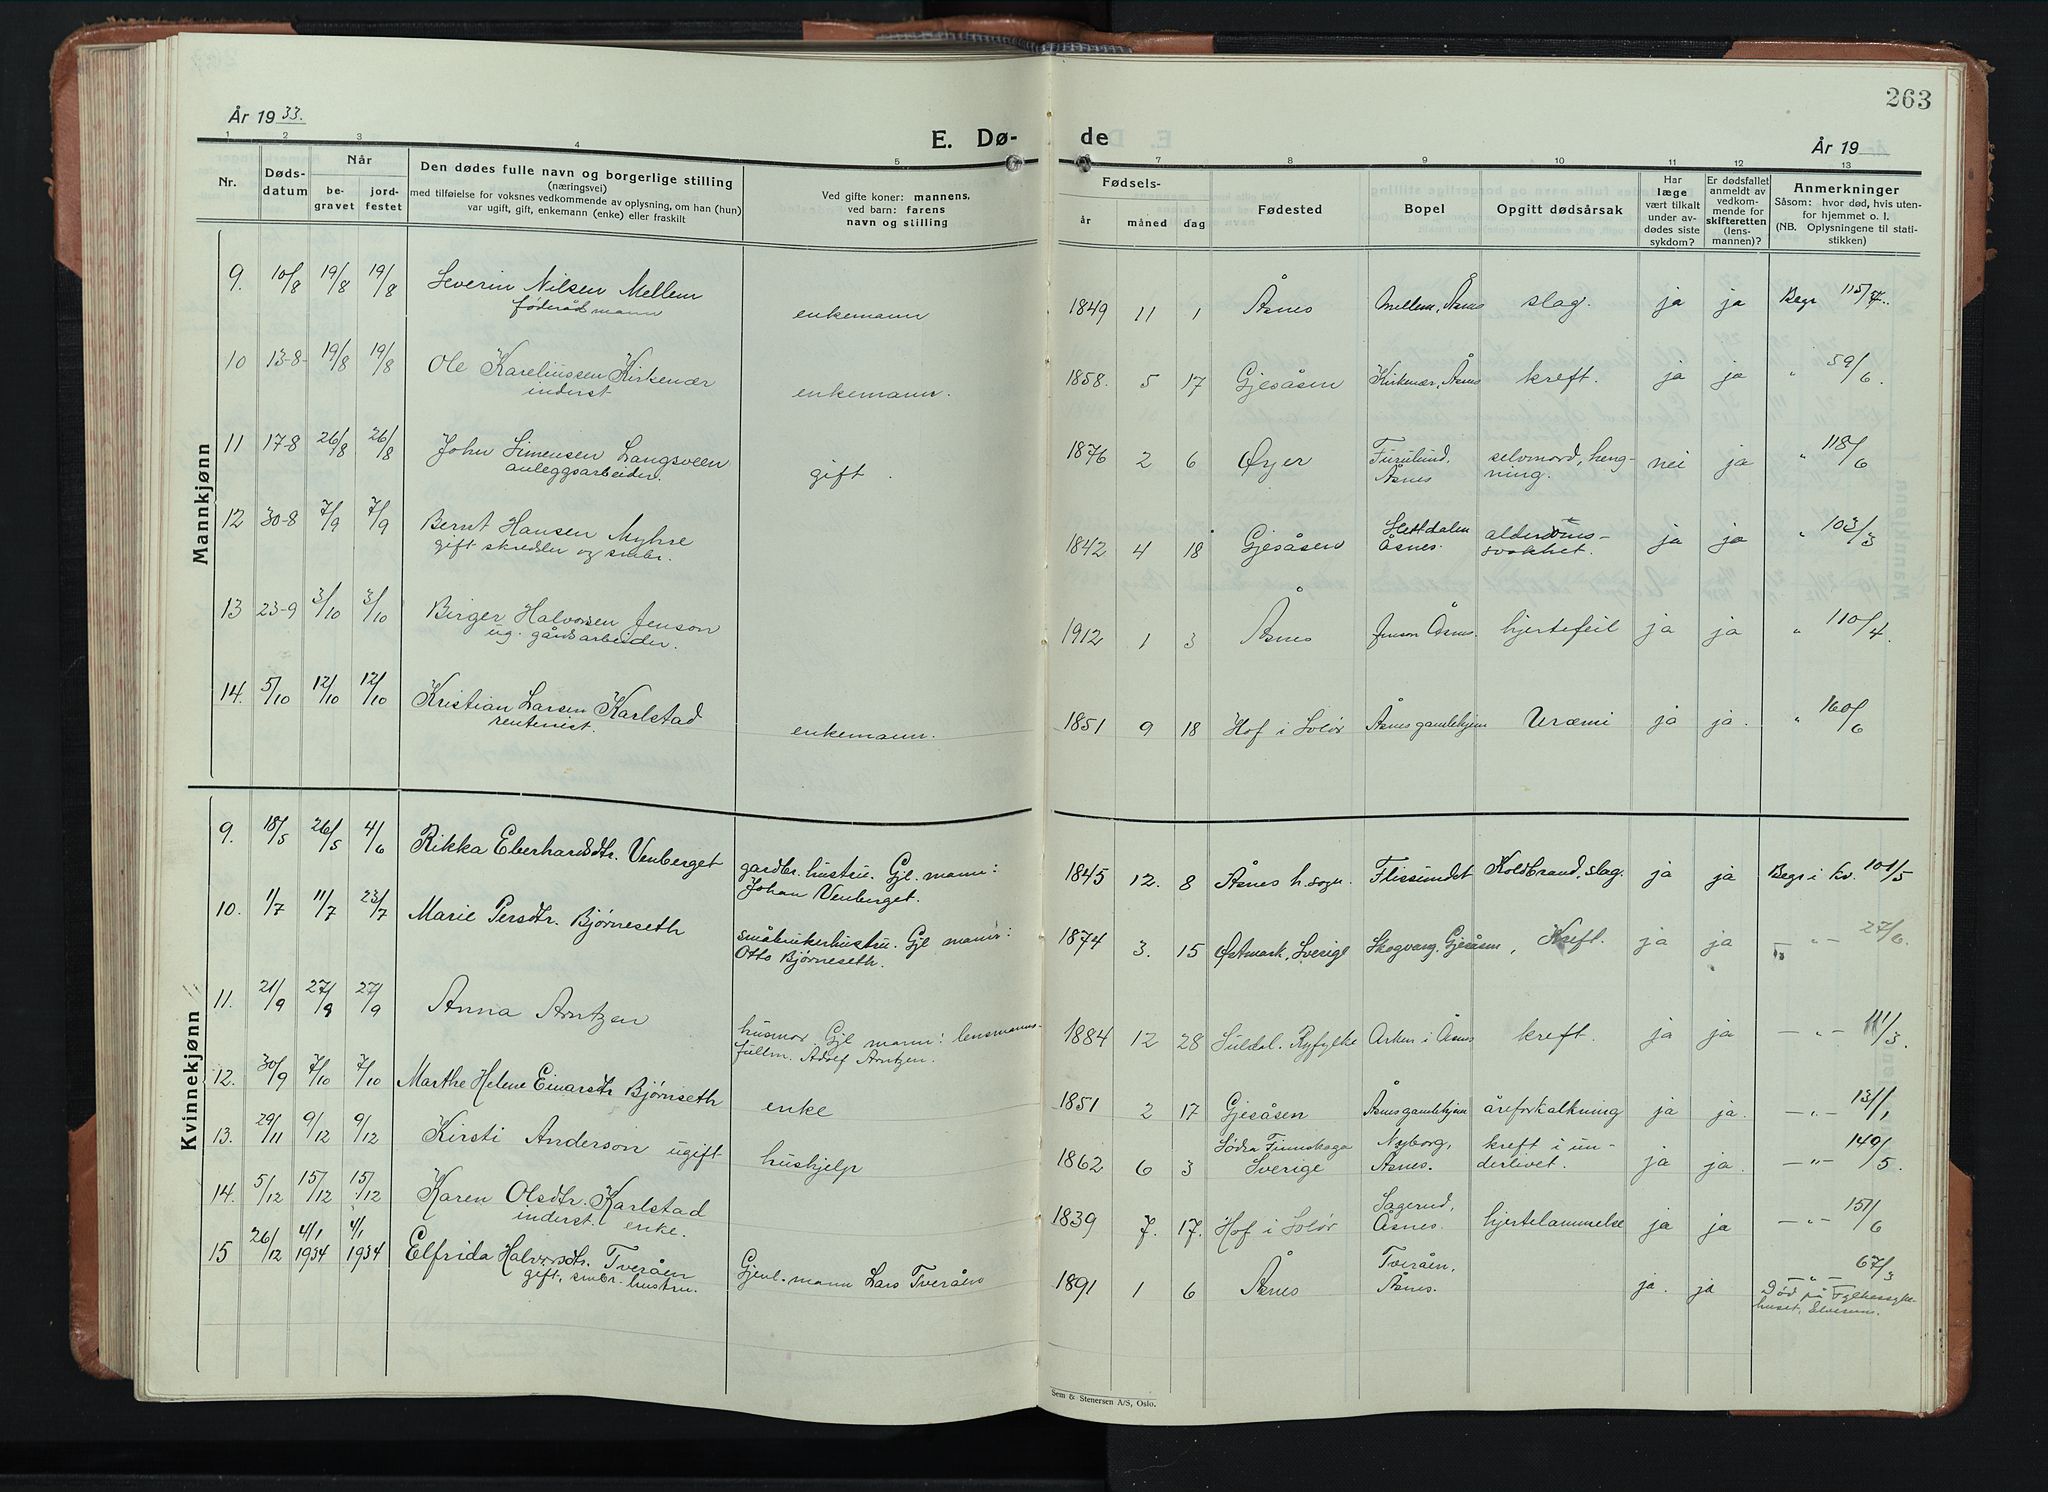 263
År 1933.
E. Dø-
de
År 19
1 2 3 4 5 7 8 9 10 11 12 13
Nr.
Døds-
datum
Når
be-
gravet
jord-
festet
Den dødes fulle navn og borgerlige stilling
(næringsvei)
med tilføielse for voksnes vedkommende av oplysning, om han (hun)
var ugift, gift, enkemann (enke) eller fraskilt
Ved gifte koner: mannens,
ved barn: farens
navn og stilling
Fødsels-
år måned dag
Fødested
Bopel
Opgitt dødsårsak
Har
læge
vært tilkalt
under av-
dødes siste
sykdom?
Er dødsfallet
anmeldt av
vedkom-
mende for
skifteretten
(lens-
mannen)?
Anmerkninger
Såsom: hvor død, hvis uten-
for hjemmet o. l.
(NB. Oplysningene til stati-
stikken)
Mannkjønn
9. 10/8 19/8 19/8 Severin Nilsen Mellem
føderådmann
enkemann 1849 11 1 Åsnes Mellem, Åsnes slag. ja ja Begr 115/7.
10 13-8- 19/8 19/8 Ole Kareliussen Kirkenær
inderst
enkemann. 1858. 5 17 Gjesåsen Kirkenær, Åsnes kreft. ja ja " 59/6.
11 17-8 26/8 26/8 John Simensen Langsveen
anleggsarbeider.
gift. 1876 2 6 Øyer Furulund,
Åsnes
selvmord, heng-
ning.
nei ja " 118/6
12 30-8 7/9 7/9 Bernt Hansen Myhre
gift skredder og smbr.
1842 4 18 Gjesåsen Hettdalen
Åsnes.
alderdoms-
svakhet.
ja ja " 103/3
13 23-9 3/10 3/10 Birger Halvorsen Jenson
ug. gårdsarbeider.
1912 1 3 Åsnes Jenson Åsnes. hjertefeil ja ja " 110/4
14. 5/10 12/10 12/10 Kristian Larsen Karlstad
rentenist.
enkemann. 1851 9 18 Hof i Solør Åsnes gamlehjem Uræmi ja ja. " 160/6
Kvinnekjønn
9. 18/5 26/5 4/6 Rikka Eberhardsdtr. Venberget
gardbr. hustru. Gjl. mann:
Johan Venberget.
1845 12. 8 Åsnes h. sogn. Flissundet Koldbrand, slag. ja ja Begr i kv. 101/5
10. 1/7 11/7 23/7 Marie Persdtr. Bjørneseth
småbrukerhustru. Gjl mann:
Otto Bjørneseth.
1874 3. 15 Østmark, Sverige Skogvang, Gjesåsen, Kreft. ja ja — " — 27/6.
11. 21/9 27/9 27/9 Anna Arntzen
husmor. Gjl mann: lensmanns-
fullm. Adolf Arntzen.
1884 12 28 Suldal. Ryfylke Arken i Åsnes kreft. ja ja — " — 11/3.
12. 30/9 7/10 7/10 Marthe Helene Einarsdtr Bjørnseth
enke 1851 2 17 Gjesåsen Åsnes gamlehjem åreforkalkning ja ja. — " — 131/1
13. 29/11 9/12 9/12 Kirsti Anderson ugift
hushjelp 1862 6 3 Södra Finnskoga
Sverige
Nyborg,
Åsnes.
kreft i un-
derlivet.
ja ja. — " — 149/5.
14. 5/12 15/12 15/12 Karen Olsdtr. Karlstad
inderst. enke.
1839 7. 17. Hof i Solør Sagerud,
Åsnes.
hjertelammelse ja ja — " — 151/6
15 26/12 4/1 1934 4/1 1934 Elfrida Halvorsdtr. Tveråen
gift, smbr. hustru.
Gjenl. mann Lars Tveråen
1891 1 6 Åsnes Tveråen,
Åsnes.
ja. ja — " — 67/3
Død på Fylkessyke-
huset, Elverum.
Sem & Stenersen A/S, Oslo.